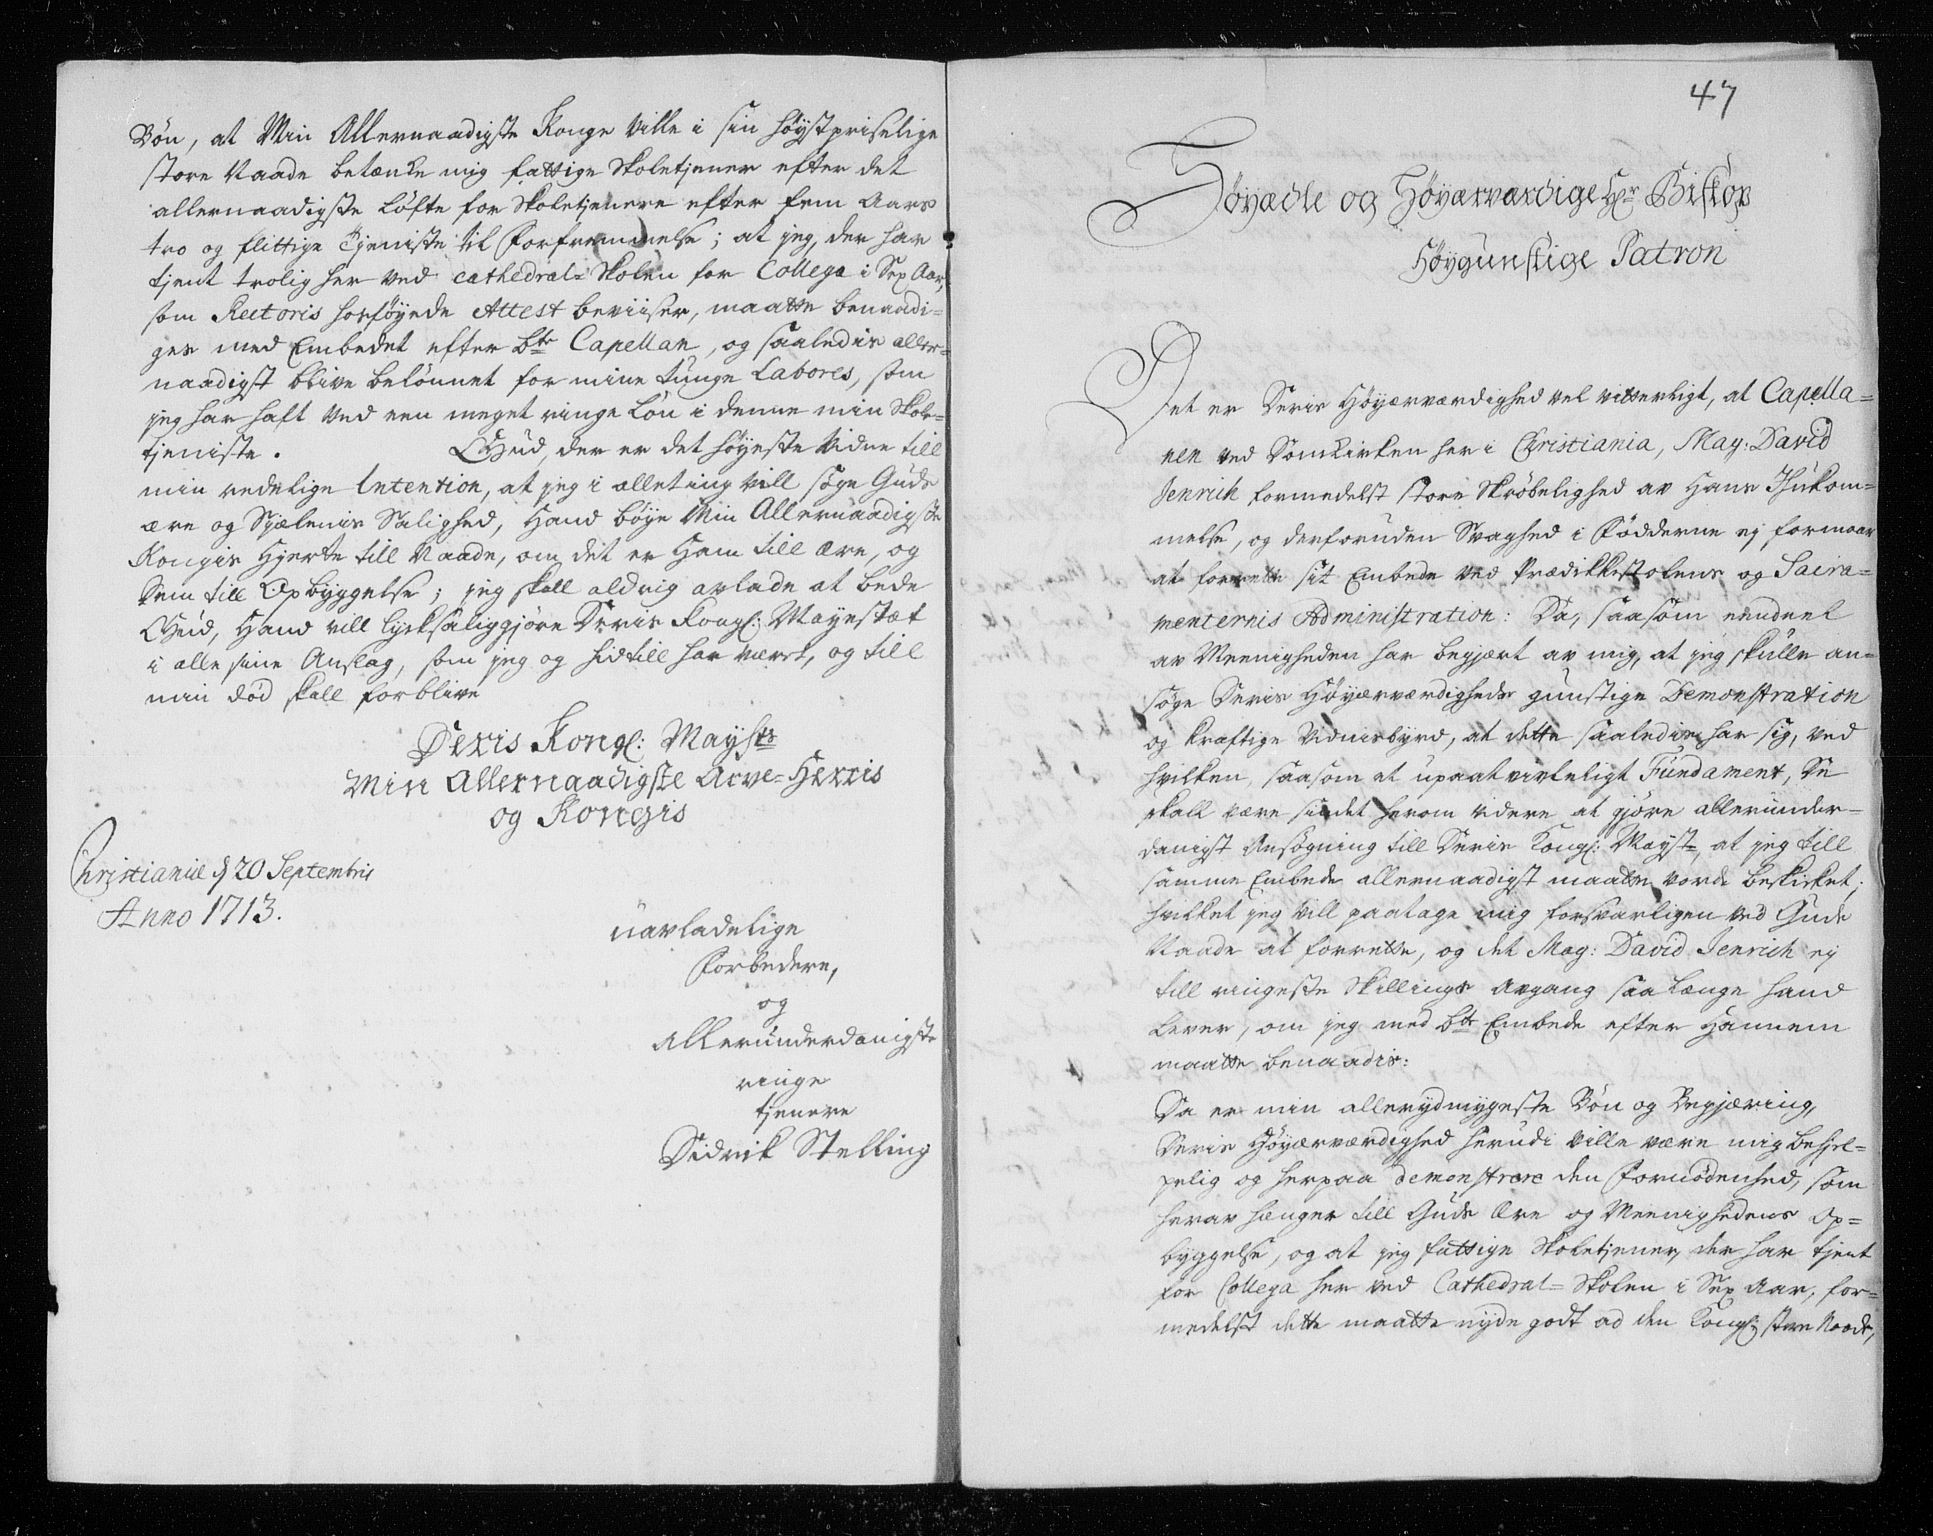 Bön, at Min Allernaadigste Konge ville i sin höystpriselige
store Naade betænke mig fattige Skoletjener efter det
allernaadigste Löfte for Skoletjenere efter fem Aars
tro og flittige Tjeniste til Forfremmelse; at jeg, der har
tjent trolig her ved Cathedral-Skolen for Collega i Sex Aar,
som Rectoris hosföyede Attest beviiser, maatte benaadi=
ges med Embedet efter bte Capellan, og saaledis aller=
naadigst blive belönnet for mine tunge Labores, som
jeg har haft ved een meget ringe Lön i denne min Skole=
tjeniste. Gud, der er det höyeste Vidne till
min redelige Intention, at jeg i alleting vill söge Guds
ære og Siælenis Salighed, Hand böye Min Allernaadigste
Kongis Hjerte till Naade, om dit er Ham till Ære, og
dem till Opbyggelse; jeg skall aldrig avlade at bede
Gud, Hand vill lycksaliggjöre Deris Kongl: Mayestæt
i alle sine Anslag, som jeg og hidtill har været, og till
min död skall forblive
Deris Kongl: Maysts
Min Allernaadigste Arve-Herris
og Kongis
Christianiæ d 20 Septembris
Anno 1713.
uavladelige
Forbedere,
og
Allerunderdanigste
ringe
tjenere
Didrik Stelling
47
Höyædle og Höyærværdige Hr Biskop
Höygunstige Patron
Det er Deris Höyærværdighed vel vitterligt, at Capella=
nen ved Domkirken her i Christiania, Mag: David
Jenrich formedelst store Skröbelighed av Hans Ihukom=
melse, og desforuden Svaghed i Födderne ej formaar
at forrette sit Embede ved Prædikkestolens og Sacra=
menternis Administration: Da, saasom eendeel
av Meenigheden har begjært av mig, at jeg skulle an=
söge Deris Höyærværdigheds gunstige Demonstration
og kraftige Vidnisbyrd, at dette saaledis har sig, ved
hvilken, saasom et upaatvivleligt Fundament, De
skall være sindet herom videre at gjöre allerunder=
danigst Ansögning till Deris Kongl: Mayst, at jeg till
samme Embede allernaadigst maatte vorde beskicket;
hvilket jeg vill paatage mig forsvarligen ved Guds
Naade at forrette, og det Mag: David Jenrich ej
till ringeste Skillings Avgang saa længe hand
lever, om jeg med bte Embede efter Hannem
maatte benaadis:
Da er min allerydmygeste Bön og Begjæring,
Deris Höyærværdighed herudi ville være mig behjel=
pelig og herpaa demonstrere den Fornödenhed, som
herav hænger till Guds Ære og Meenighedens Op=
byggelse, og at jeg fattige Skoletjener, der har tjent
for Collega her ved Cathedral-Skolen i Sex Aar, for=
medelst dette maatte nyde godt ad den Kongl: store Naade,